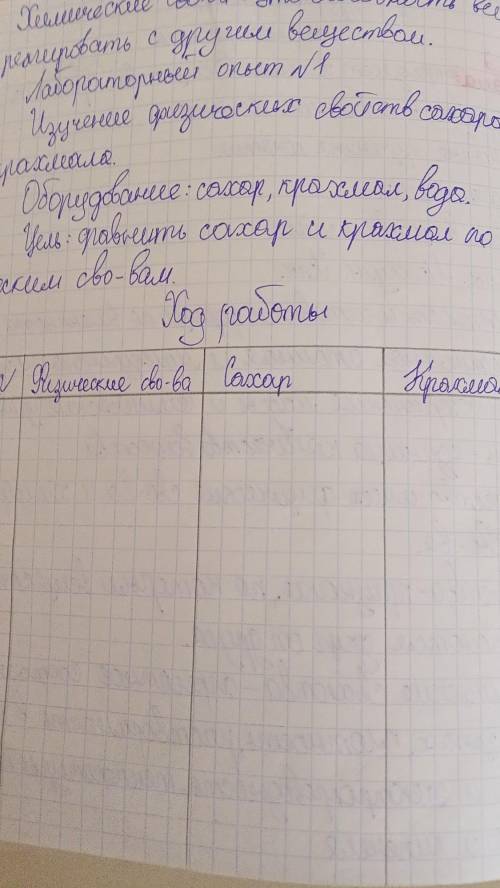 Химические
реагировать с другим веществом.
Лабораторный опыт №1
Изучение физических свойств сахара
крахмала.
Оборудование: сахар, крахмал, вода.
Цель: сравнить сахар и крахмал по
ским сво-вам.
Ход работы
№ Физические сво-ва Сахар Крахма